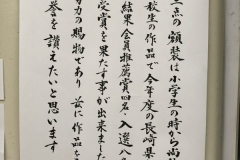 三点の額装は小学生の時から尚
校生の作品で今年度の長崎県
結果会員推薦賞四名、入選八
受賞を果たす事が出来ました
力の賜物であり 茲に作品を
誉を讃えたいと思います